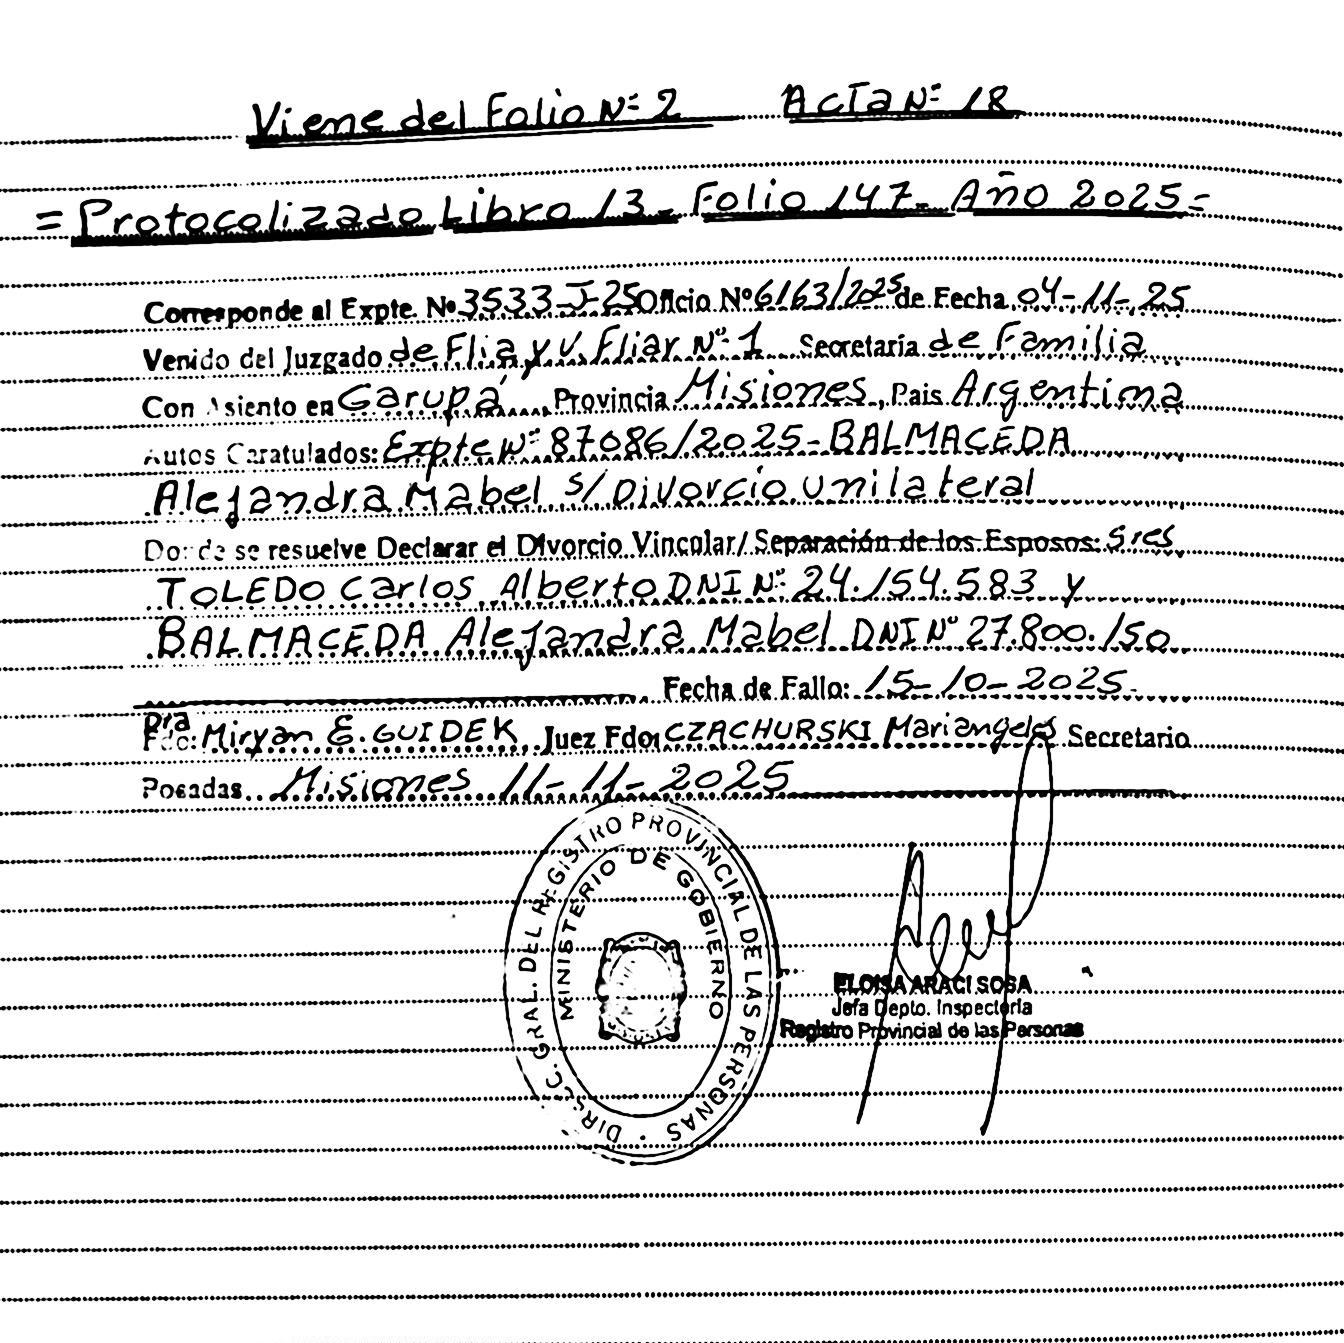 Viene del Folio Nº 2 Acta Nº 18
= Protocolizado Libro 13 - Folio 147 - Año 2025 =
Corresponde al Expte. Nº 3533-J-25 Oficio Nº 6163/2025 de Fecha 04-11-25
Venido del Juzgado de Flia y V. Fliar Nº 1 Secretaría de Familia
Con Asiento en Garupá, Provincia Misiones, Pais Argentina
Autos Caratulados: Expte Nº 87086/2025 - BALMACEDA
Alejandra Mabel s/ Divorcio Unilateral
Donde se resuelve Declarar el Divorcio Vincular/ Separación de los Esposos: Sres
TOLEDO Carlos Alberto DNI Nº 24.154.583 y
BALMACEDA Alejandra Mabel DNI Nº 27.800.150
Fecha de Fallo: 15-10-2025-
Dra
Fdo: Miryan E. GUIDEK Juez Fdo: CZACHURSKI Mariangeles Secretario
Posadas Misiones 11-11-2025
DIRECC. GRAL. DEL REGISTRO PROVINCIAL DE LAS PERSONAS
MINISTERIO DE GOBIERNO
ELOISA ARACI SOSA
Jefa Depto. Inspectoria
Registro Provincial de las Personas